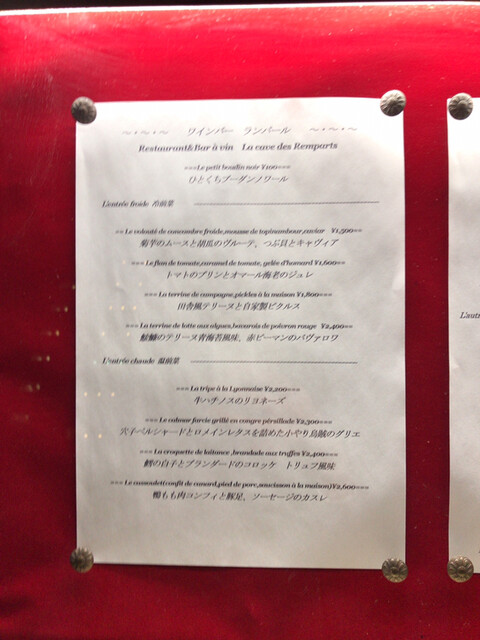 ～・～・～ ワインバー ランパール ～・～・～
Restaurant&Bar à vin La cave des Remparts
===Le petit boudin noir ¥100===
ひとくちブーダンノワール
L'entrée froide 冷前菜
== Le velouté de concombre froide,mousse de topinambour,caviar ¥1,500==
菊芋のムースと胡瓜のヴルーテ、つぶ貝とキャヴィア
===Le flan de tomate,caramel de tomate, gelée d'homard ¥1,600==
トマトのプリンとオマール海老のジュレ
===La terrine de campagne,pickles à la maison ¥1,800===
田舎風テリーヌと自家製ピクルス
=== La terrine de lotte aux algues,bavarois de poivron rouge ¥2,400==
鮟鱇のテリーヌ青海苔風味、赤ピーマンのババァロワ
L'entrée chaude 温前菜
===La tripe à la Lyonnaise ¥2,200===
牛ハチノスのリヨネーズ
===Le calmar farcie grillé en congre pérsillade ¥2,300===
穴子ペルシャードとロメインレタスを詰めた小やり烏賊のグリエ
=== La croquette de laitance ,brandade aux truffes ¥2,400===
鱈の白子とブランダードのコロッケ トリュフ風味
=== Le cassoulet(confit de canard,pied de porc,saucisson à la maison)¥2,600===
鴨もも肉コンフィと豚足、ソーセージのカスレ
L'autr